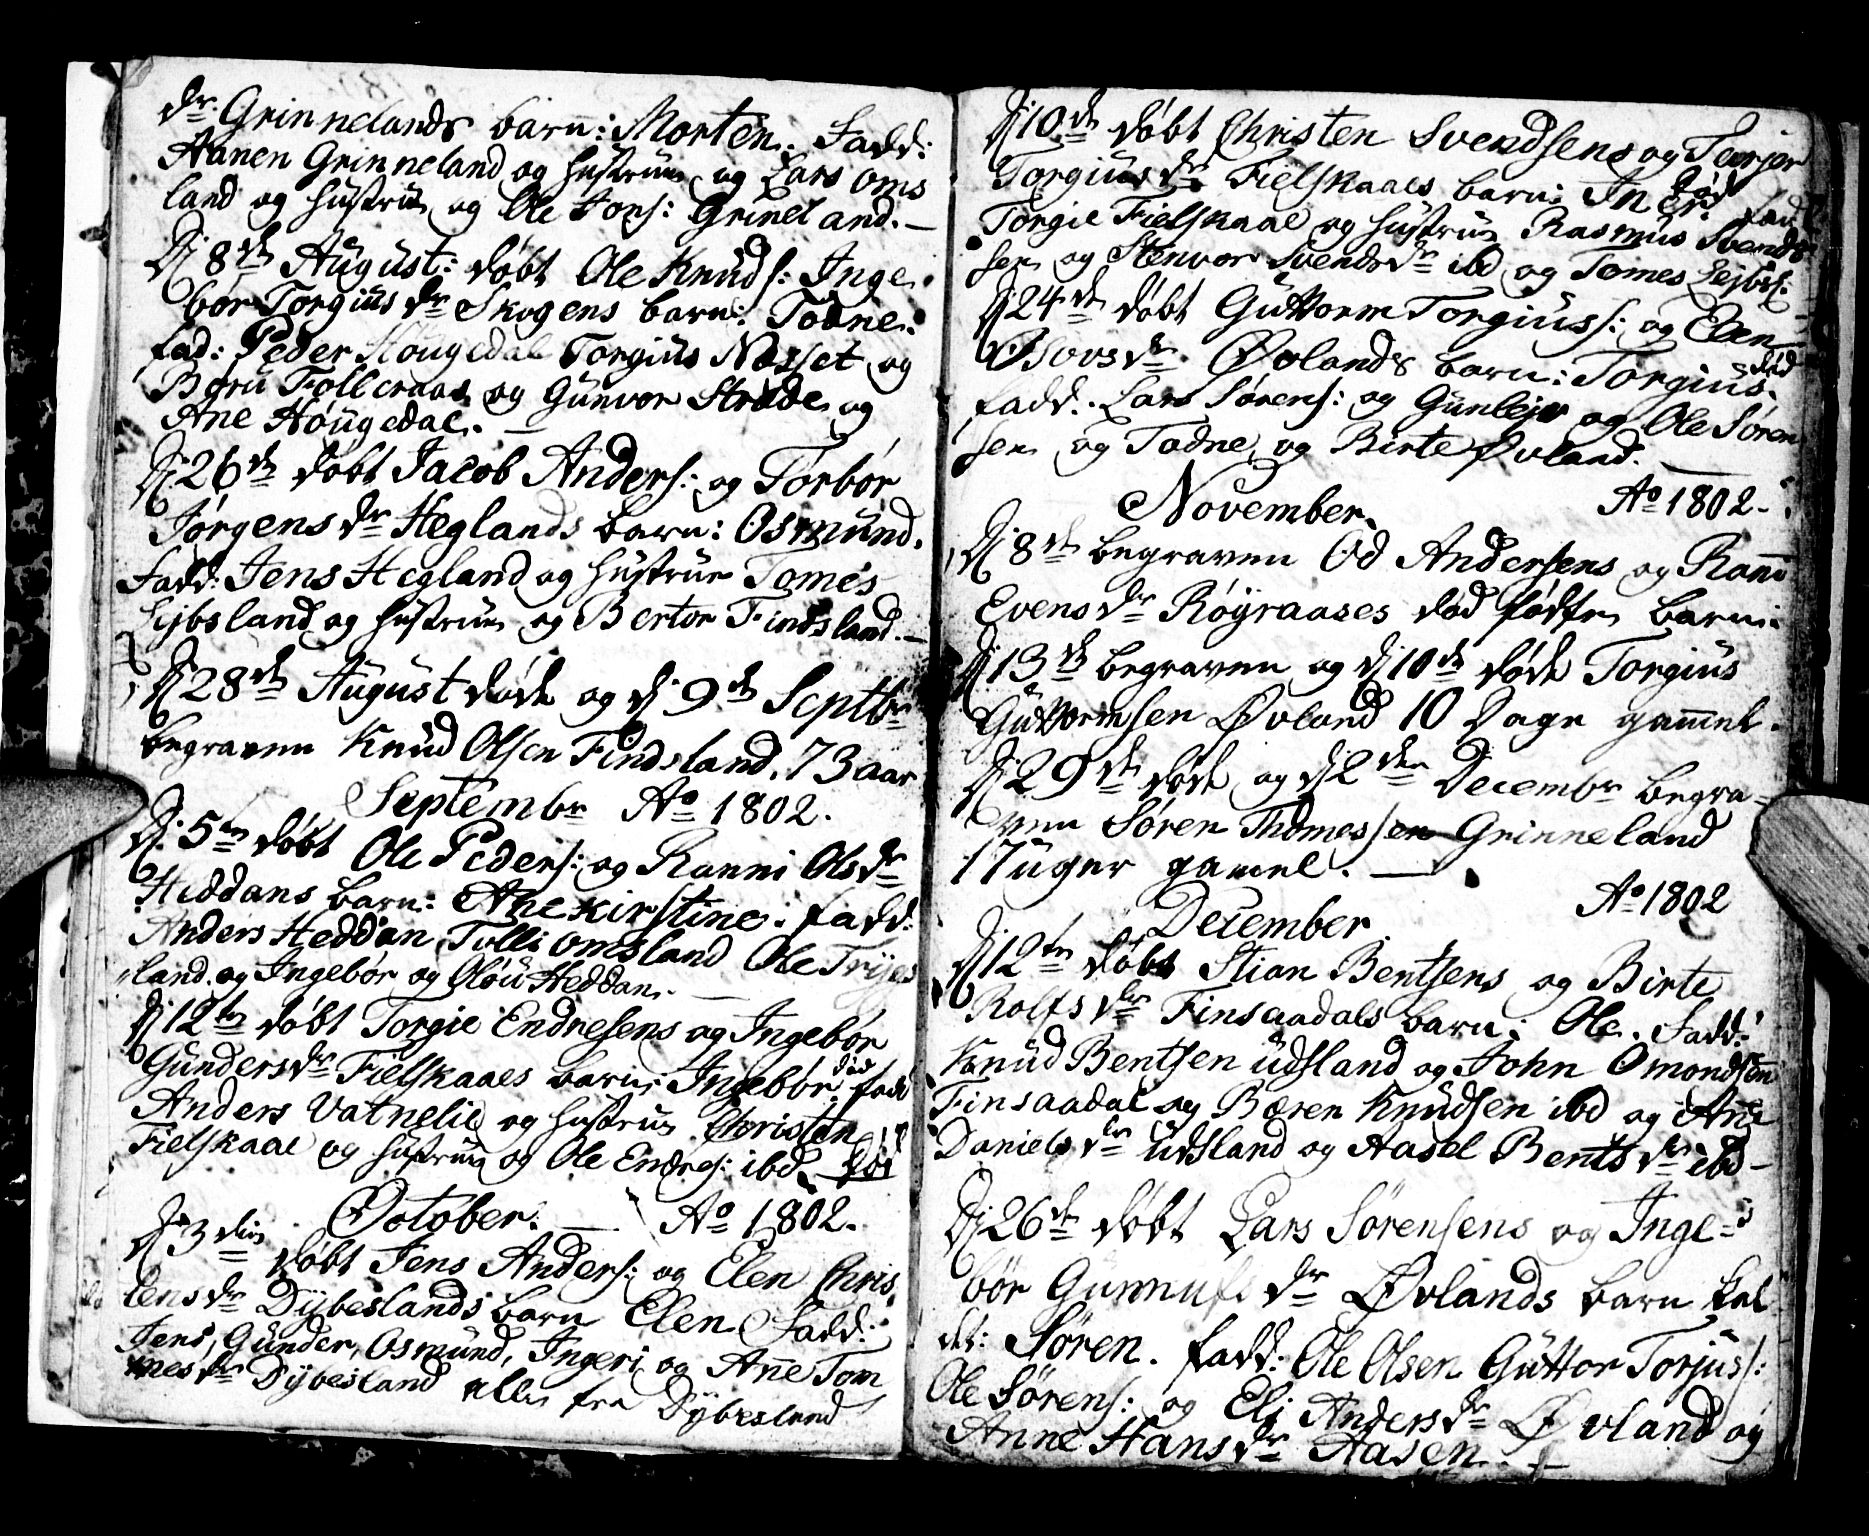 dr. Grinnelands barn: Morten. Fadd:
Aanen Grinneland og hustrue og Lars Oms
land og hustrue og Ole Jons: Grineland. —
Dj 8de August: døbt Ole Knuds: Inge
bør Torgius dr Skogens barn: Todne.
fad: Peder Hougedal Torgius Nosset og
Boru Folleraas og Gunvor Strode og
Ane Hougedal. —
Dj 26de døbt Jacob Anders: og Torbør
Jørgens dr Heglands barn: Osmund.
Fadd: Jens Hegland og hustrue Tomes
Lejbsland og hustrue og Bertor Findsland. —
Dj 28de August døde og dj 9de Septbr
begraven Knud Olsen Findsland. 73 aar
Septembr Ao 1802.
Dj. 5te døbt Ole Peders: og Ranni Ols dr
Heddans barn: Ane Kirstine: fadd:
Anders Heddan, Tolli Omsland Ole Tryes
land og Ingebør og Oløu Heddan. —
Dj 12te døbt Torgie Endresens og Ingebor
Gunders dr Fielskaaes barn: Ingebør. død fadd
Anders Vatnelie og hustrue Christen
Fielskaae og hustrue og Ole Endres: ibd. død
October. — Ao 1802.
Dj 3die døbt Jens Anders: og Elen Chris
tens dr Dybeslands barn Elen Fadd:
Jens, Gunder, Osmund, Ingeri og Ane Tom
mes dr Dybesland alle fra Dybesland
Dj 10de døbt Christen Svendsens og Teorjer
Torgius dr Fielskaaes barn: Inger. død fad
Torgie Fielskaae og hustrue Rasmus Svend
sen og Stenvor Svends dr ibd og Tomes Lejbs:
Dj 24de døbt Guttorm Torgius: og Elen
Osovs dr. Øvlands barn: Torgius. død
fadd: Lars Sørens: og Gunlejv og Ole Søren
sen og Todne og Birte Øvland. —
November. Ao 1802.
Dj 8de begraven Od Andersens og Rani
Evens dr Røyraases død fødte barn:
Dj 13de begraven og dj 10de døde Torgius
Guttormsen Øvland 10 Dage gammel.
Dj 29de døde og dj 2den Decembr begra-
ven Søren Thomessen Grinneland
17 uger gamel. —
December Ao 1802
Dj 12te døbt Stian Bentsens og Birte
Rolfs dr Finsaadals barn: Ole. Fadd:
Knud Bentsen Udsland og John Omondsen
Finsaadal og Bæren Knudsen ibd og Ane
Daniels dr Udsland og Aasel Bents dr ibd —
Dj 26de døbt Lars Sørensens og Inge-
bør Gunnufs dr Øvlands barn kal
det: Søren. fadd: Ole Olsen Guttor Torjus:
Ole Sørens: og Eli Anders dr Øvland og
Anne Hans dr Aasen. —